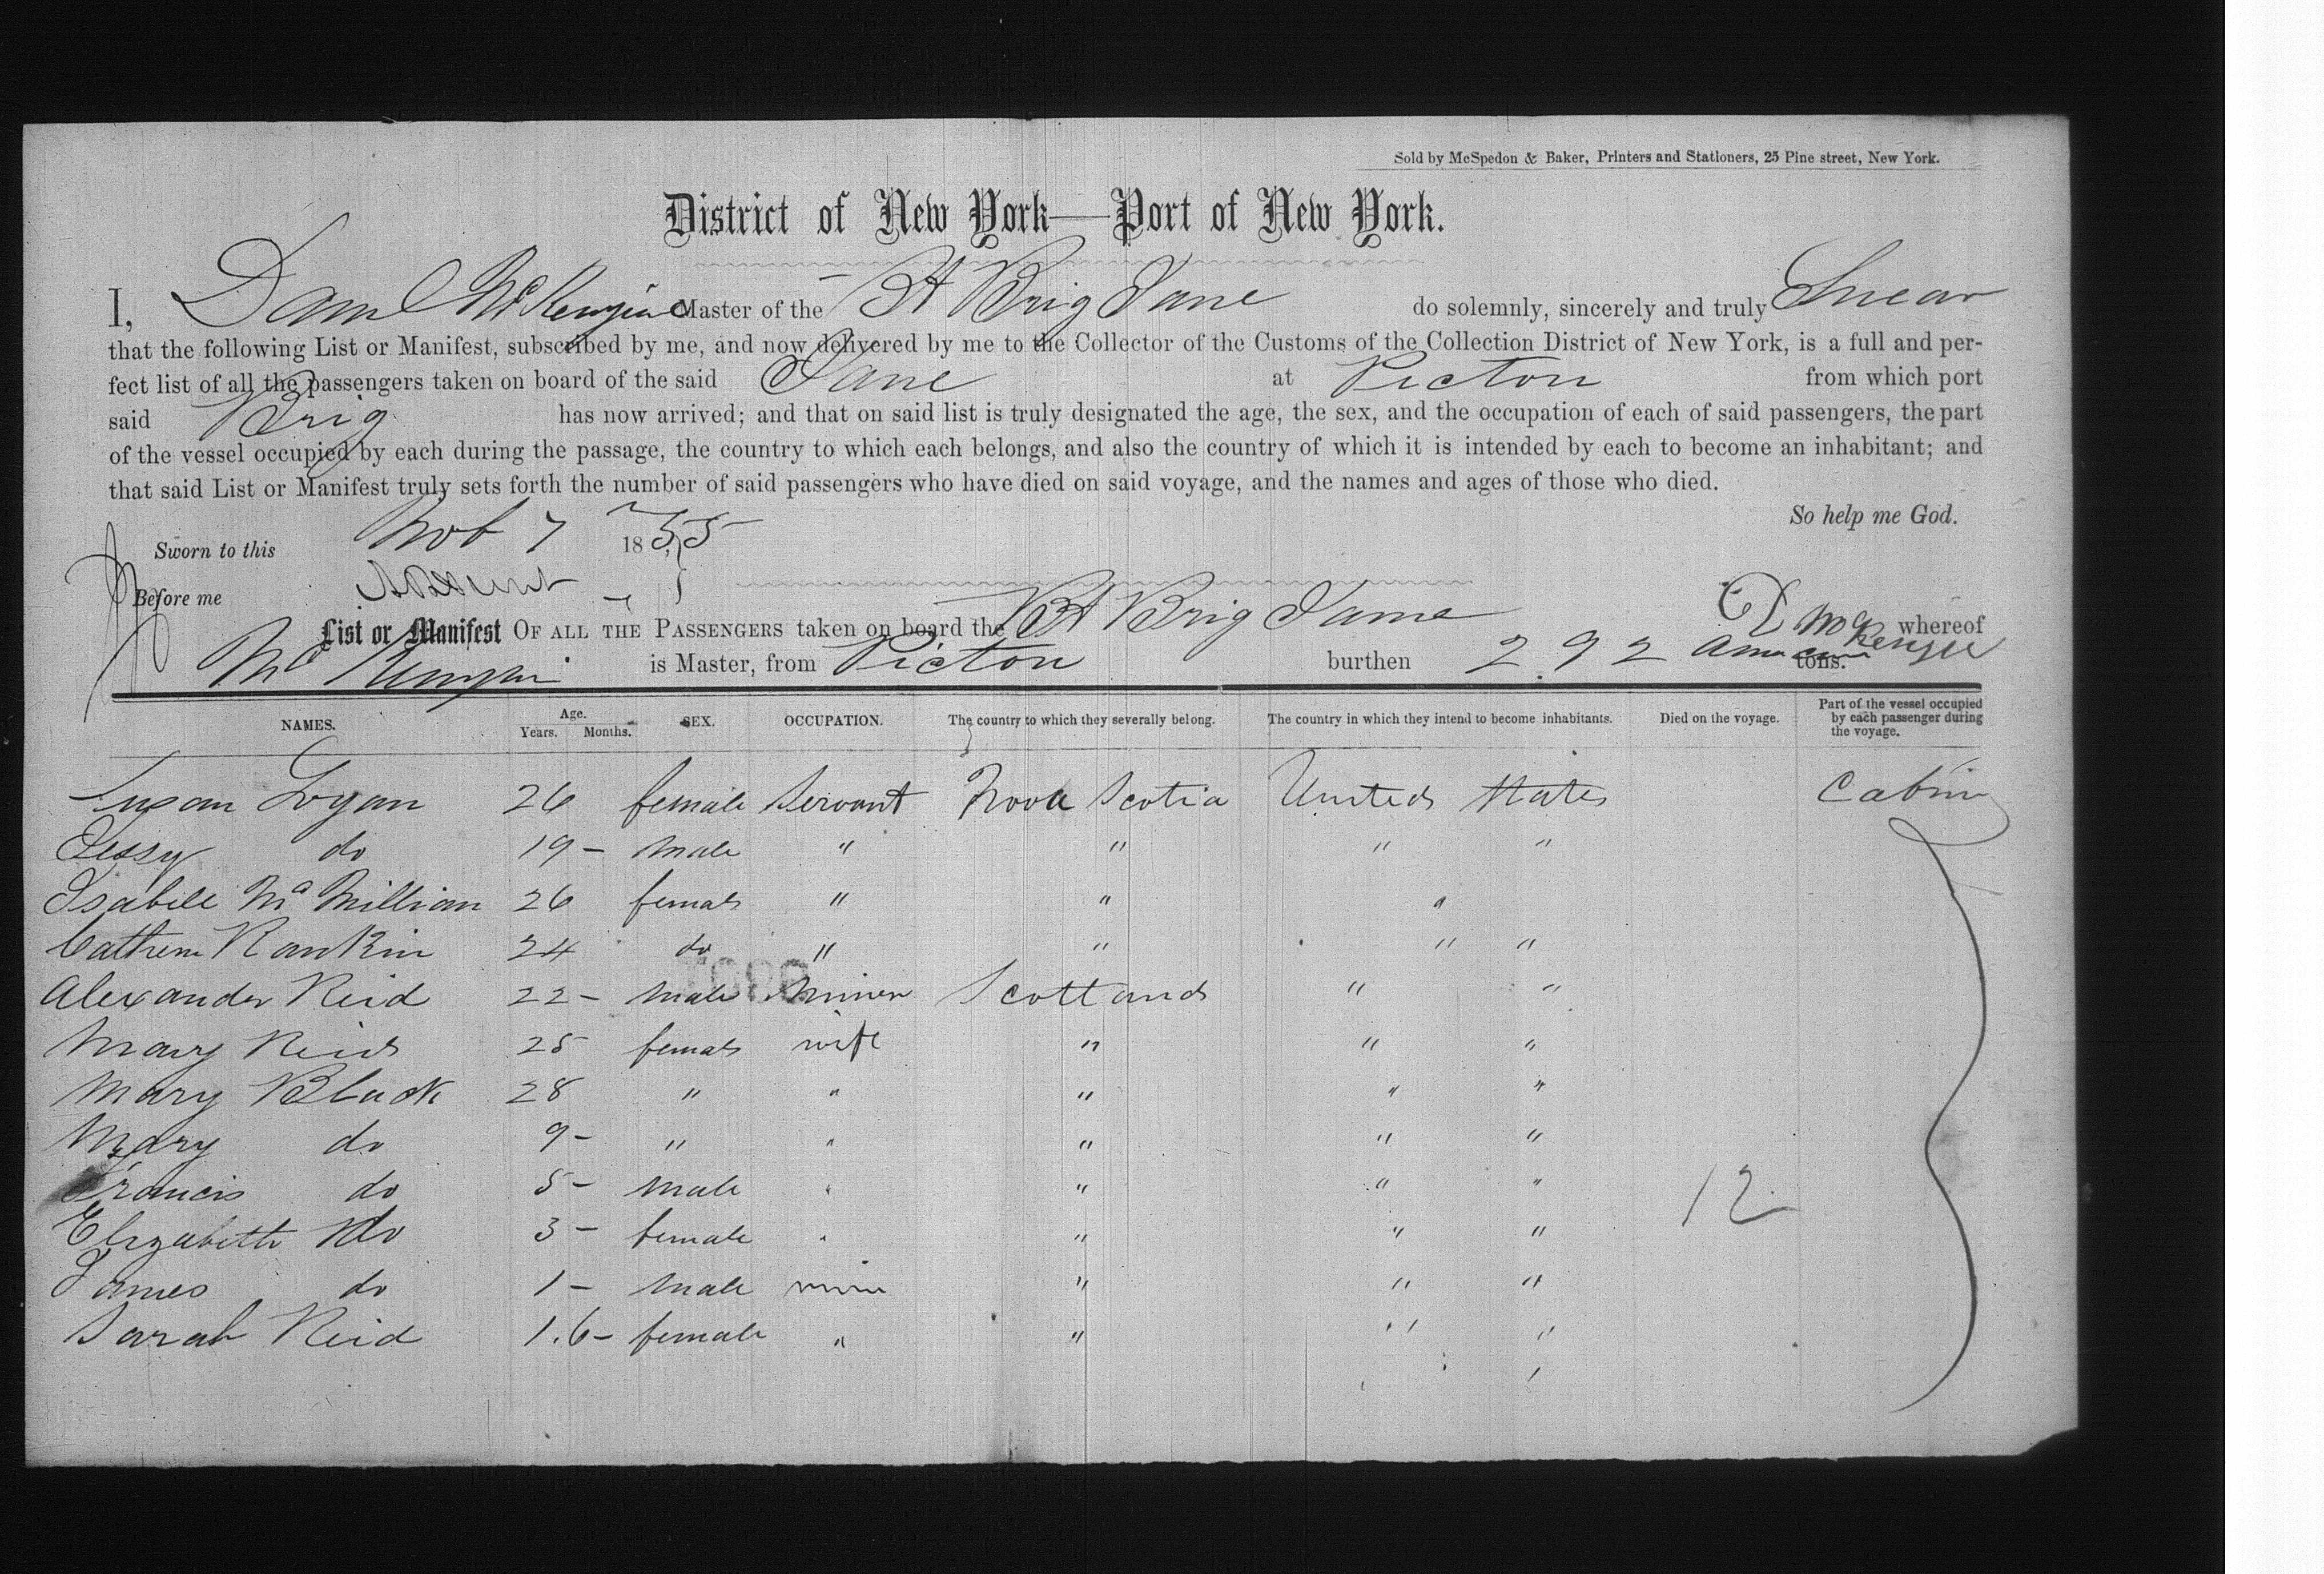 Sold by McSpedon & Baker, Printers and Stationers, 25 Pine street, New York.
District of New York—Port of New York.
I, Danl McKenzie Master of the Bt Brig Jane do solemnly, sincerely and truly Swear
that the following List or Manifest, subscribed by me, and now delivered by me to the Collector of the Customs of the Collection District of New York, is a full and per-
fect list of all the passengers taken on board of the said Jane at Picton from which port
said Brig has now arrived; and that on said list is truly designated the age, the sex, and the occupation of each of said passengers, the part
of the vessel occupied by each during the passage, the country to which each belongs, and also the country of which it is intended by each to become an inhabitant; and
that said List or Manifest truly sets forth the number of said passengers who have died on said voyage, and the names and ages of those who died.
So help me God.
Sworn to this Nob 7 1855
Before me
List or Manifest OF ALL THE PASSENGERS taken on board the Bt Brig Jame D McKenzie whereof
is Master, from Picton burthen 292 tons.
NAMES. Age. Years. Months. SEX. OCCUPATION. The country to which they severally belong. The country in which they intend to become inhabitants. Died on the voyage. Part of the vessel occupied by each passenger during the voyage.
Susan Logan 26 female Servant Nova Scotia United States Cabin
Jessy do 19 - male " " " "
Isabell Mc Millian 26 female " " "
Cathern Rankin 24 do " " " "
Alexander Reid 22 - male Miner Scottland " "
Mary Reid 25 female wife " " "
Mary Black 28 " " " " "
Mary do 9 - " " " " "
Francis do 5 - male " " " "
Elizabeth do 3 - female " " " "
James do 1 - male " " "
Sarah Reid 1.6 - female " " " "
12